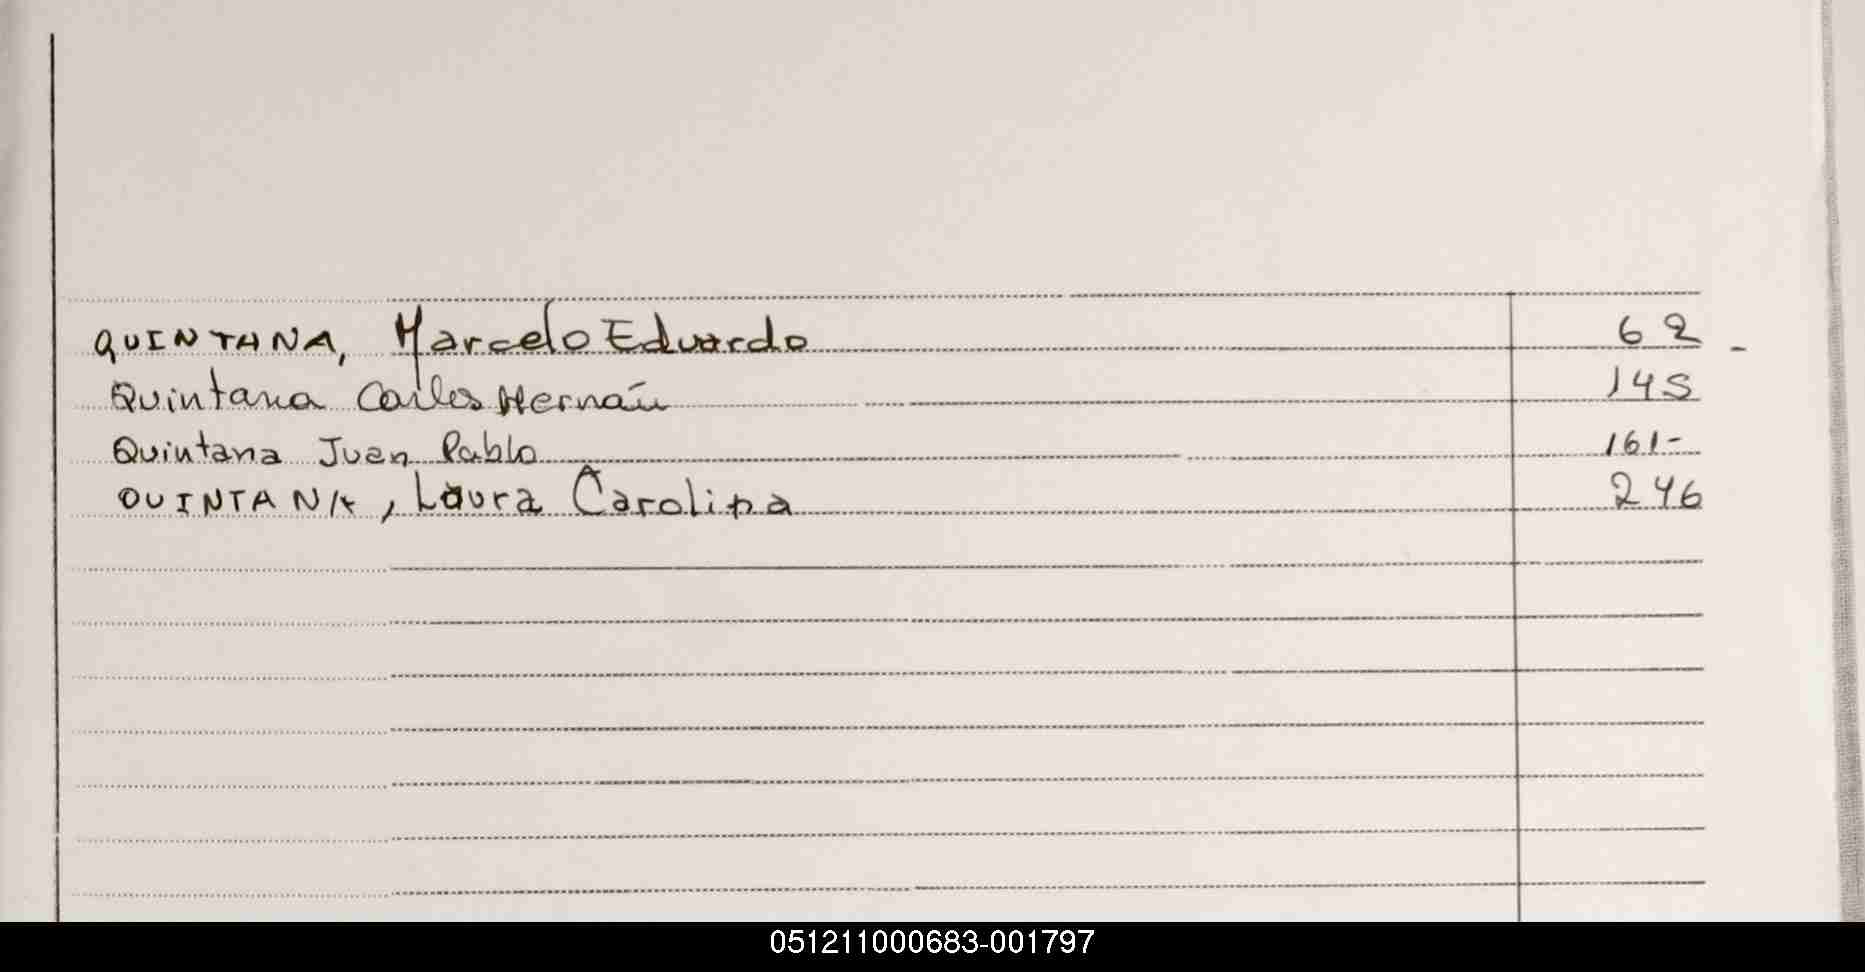 QUINTANA, Marcelo Eduardo 62 -
Quintana Carlos Hernán 145
Quintana Juan Pablo 161-
QUINTANA, Laura Carolina 246
051211000683-001797